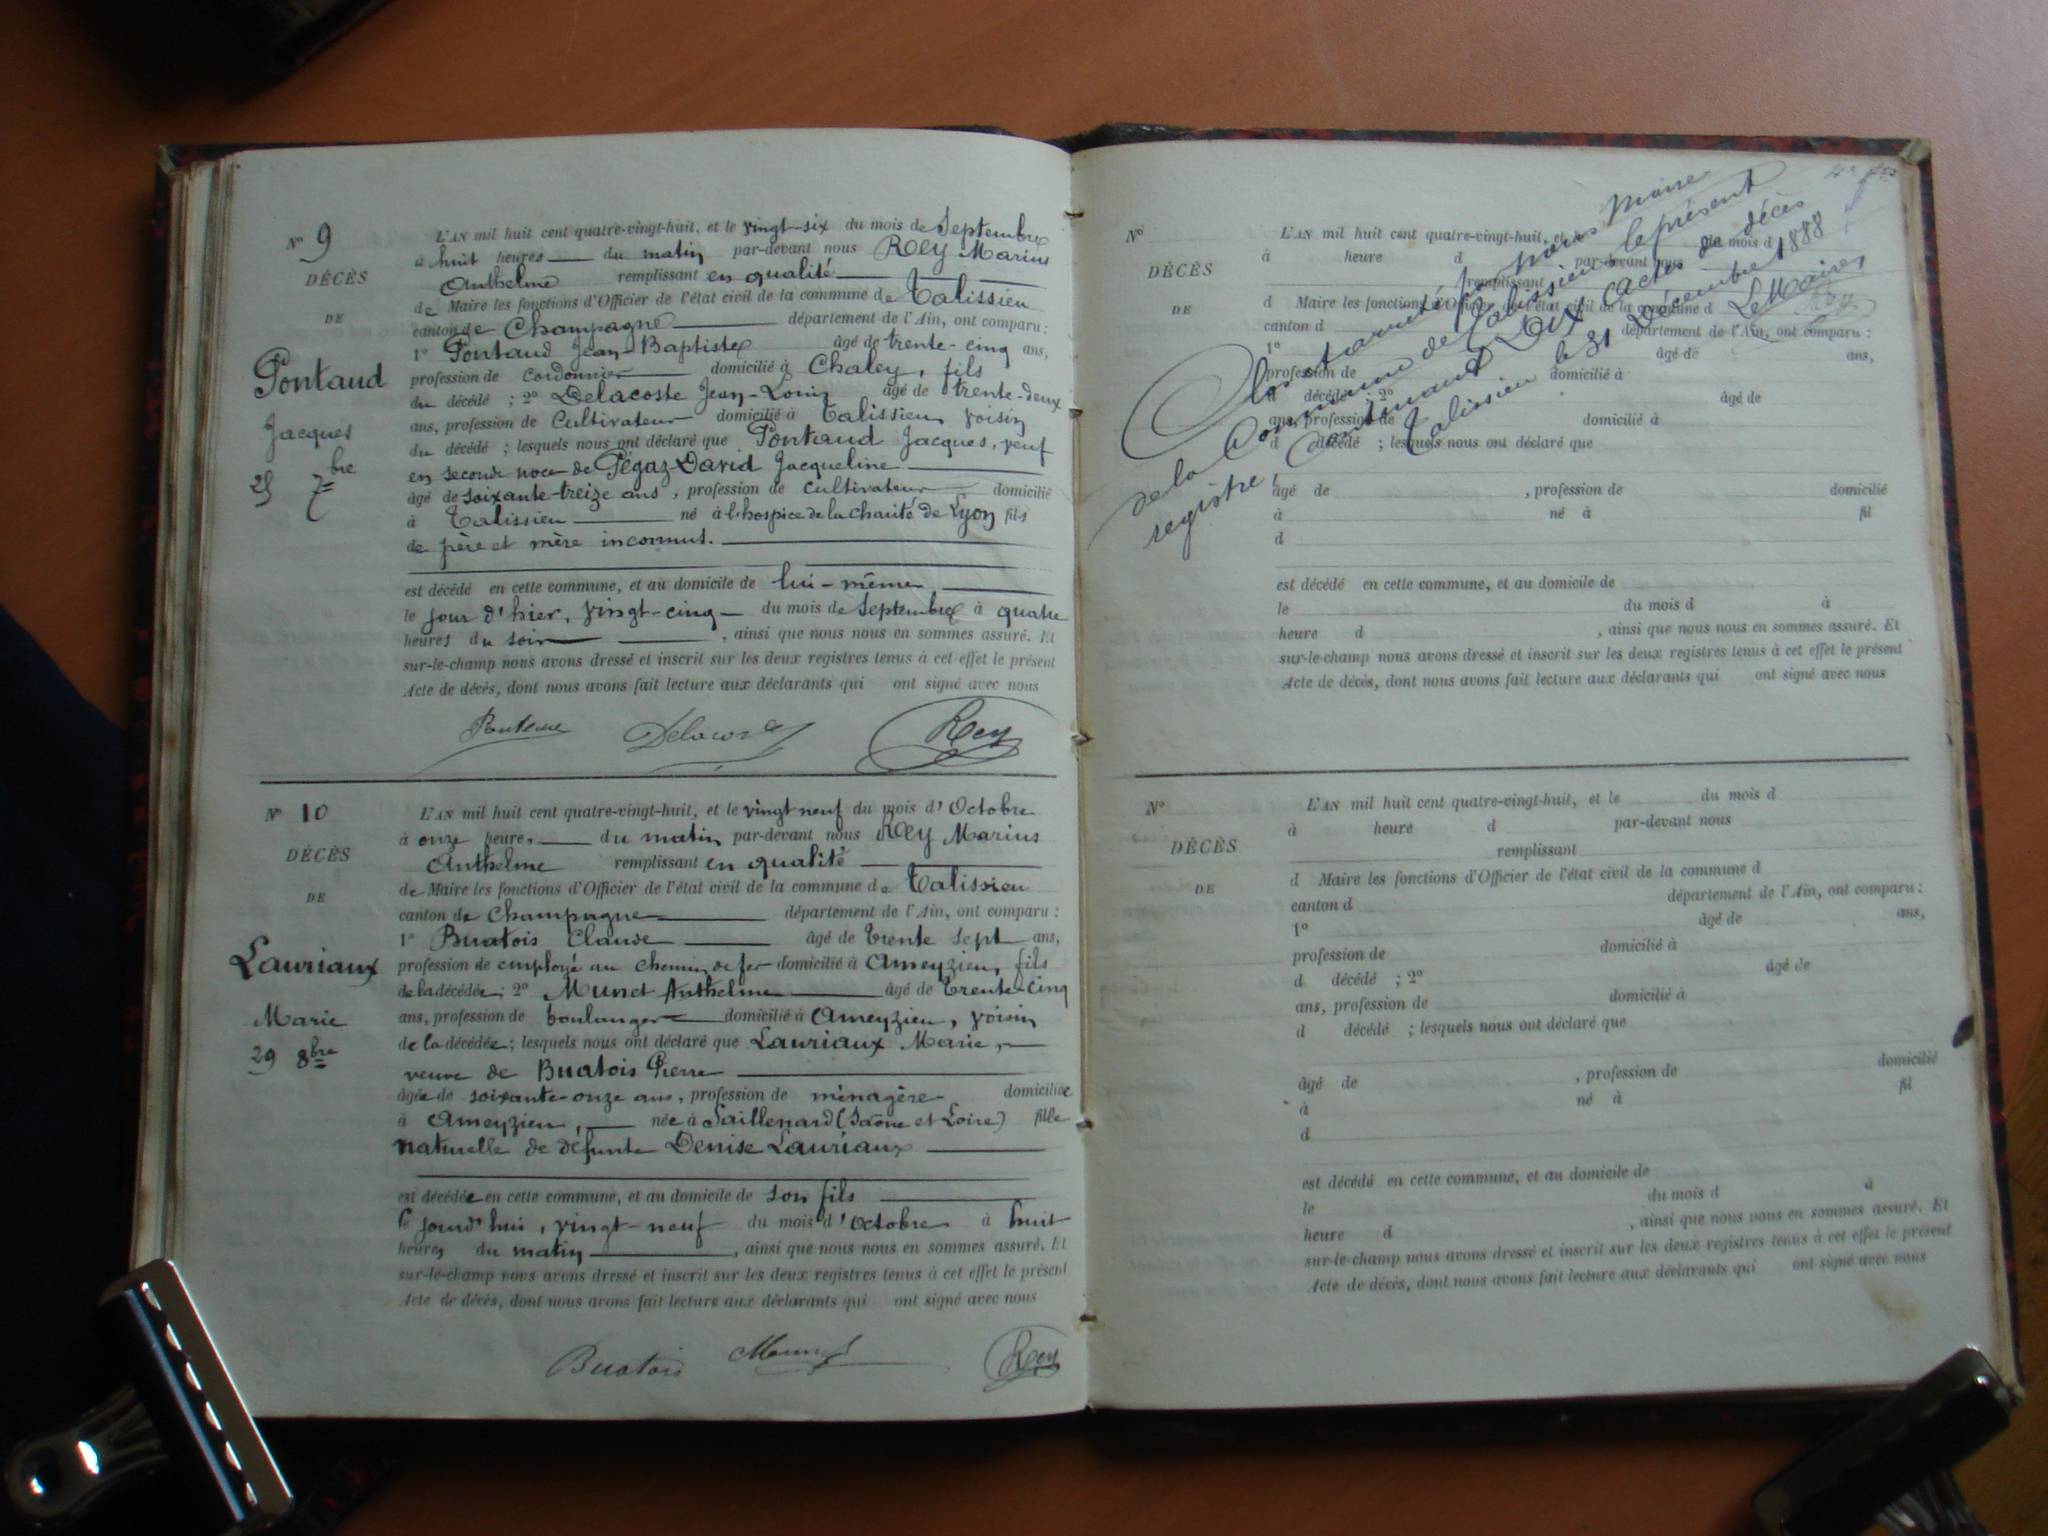 N° 9
DÉCÈS
DE
Pontaud
Jacques
25 7bre
L'AN mil huit cent quatre-vingt-huit, et le vingt-six du mois de Septembre
à huit heures du matin par-devant nous Rey Marius
Anthelme remplissant en qualité
de Maire les fonctions d'Officier de l'état civil de la commune de Talissieu
canton de Champagne département de l'Ain, ont comparu :
1° Pontaud Jean-Baptiste âgé de trente-cinq ans,
profession de cordonnier domicilié à Chaley, fils
du décédé ; 2° Delacoste Jean-Louis âgé de trente-deux
ans, profession de Cultivateur domicilié à Talissieu voisin
du décédé ; lesquels nous ont déclaré que Pontaud Jacques, veuf
en seconde noce de Pégaz-David Jacqueline
âgé de soixante-treize ans, profession de cultivateur domicilié
à Talissieu né à l'hospice de la charité de Lyon fils
de père et mère inconnus.
est décédé en cette commune, et au domicile de lui-même
le jour d'hier, vingt-cinq du mois de Septembre à quatre
heures du soir, ainsi que nous nous en sommes assuré. Et
sur-le-champ nous avons dressé et inscrit sur les deux registres tenus à cet effet le présent
Acte de décès, dont nous avons fait lecture aux déclarants qui ont signé avec nous
Rey
N° 10
DÉCÈS
DE
Lauriaux
Marie
29 8bre
L'AN mil huit cent quatre-vingt-huit, et le vingt neuf du mois d'Octobre
à onze heures du matin par-devant nous Rey Marius
Anthelme remplissant en qualité
de Maire les fonctions d'Officier de l'état civil de la commune de Talissieu
canton de Champagne département de l'Ain, ont comparu :
1° Buatois Claude âgé de trente sept ans,
profession de employé au chemin de fer domicilié à Ameyzieu, fils
de la décédée ; 2° Munet Anthelme âgé de trente-cinq
ans, profession de boulanger domicilié à Ameyzieu, voisin
de la décédée ; lesquels nous ont déclaré que Lauriaux Marie,
veuve de Buatois Pierre
âgée de soixante-onze ans, profession de ménagère domiciliée
à Ameyzieu, née à Saillenard (Saône et Loire) fille
naturelle de défunte Denise Lauriaux
est décédée en cette commune, et au domicile de son fils
le jourd'hui, vingt-neuf du mois d'Octobre à huit
heures du matin, ainsi que nous nous en sommes assuré. Et
sur-le-champ nous avons dressé et inscrit sur les deux registres tenus à cet effet le présent
Acte de décès, dont nous avons fait lecture aux déclarants qui ont signé avec nous
Buatois Rey
Clos et arrêté par nous Maire
de la Commune de Talissieu le présent
registre, contenant Dix actes de décès
Talissieu le 31 Décembre 1888
Le Maire,
Rey
N°
DÉCÈS
DE
L'AN mil huit cent quatre-vingt-huit, et du mois d
à heure d par-devant nous
remplissant
d Maire les fonctions d'Officier de l'état civil de la commune d
canton d département de l'Ain, ont comparu :
1° âgé de ans,
profession de domicilié à
d décédé ; 2° âgé de
ans, profession de domicilié à
d décédé ; lesquels nous ont déclaré que
âgé de , profession de domicilié
à né à fil
d
est décédé en cette commune, et au domicile de
le du mois d à
heure d , ainsi que nous nous en sommes assuré. Et
sur-le-champ nous avons dressé et inscrit sur les deux registres tenus à cet effet le présent
Acte de décès, dont nous avons fait lecture aux déclarants qui ont signé avec nous
N°
DÉCÈS
DE
L'AN mil huit cent quatre-vingt-huit, et le du mois d
à heure d par-devant nous
remplissant
d Maire les fonctions d'Officier de l'état civil de la commune d
canton d département de l'Ain, ont comparu :
1° âgé de ans,
profession de domicilié à
d décédé ; 2° âgé de
ans, profession de domicilié à
d décédé ; lesquels nous ont déclaré que
âgé de , profession de domicilié
à né à fil
d
est décédé en cette commune, et au domicile de
le du mois d à
heure d , ainsi que nous nous en sommes assuré. Et
sur-le-champ nous avons dressé et inscrit sur les deux registres tenus à cet effet le présent
Acte de décès, dont nous avons fait lecture aux déclarants qui ont signé avec nous